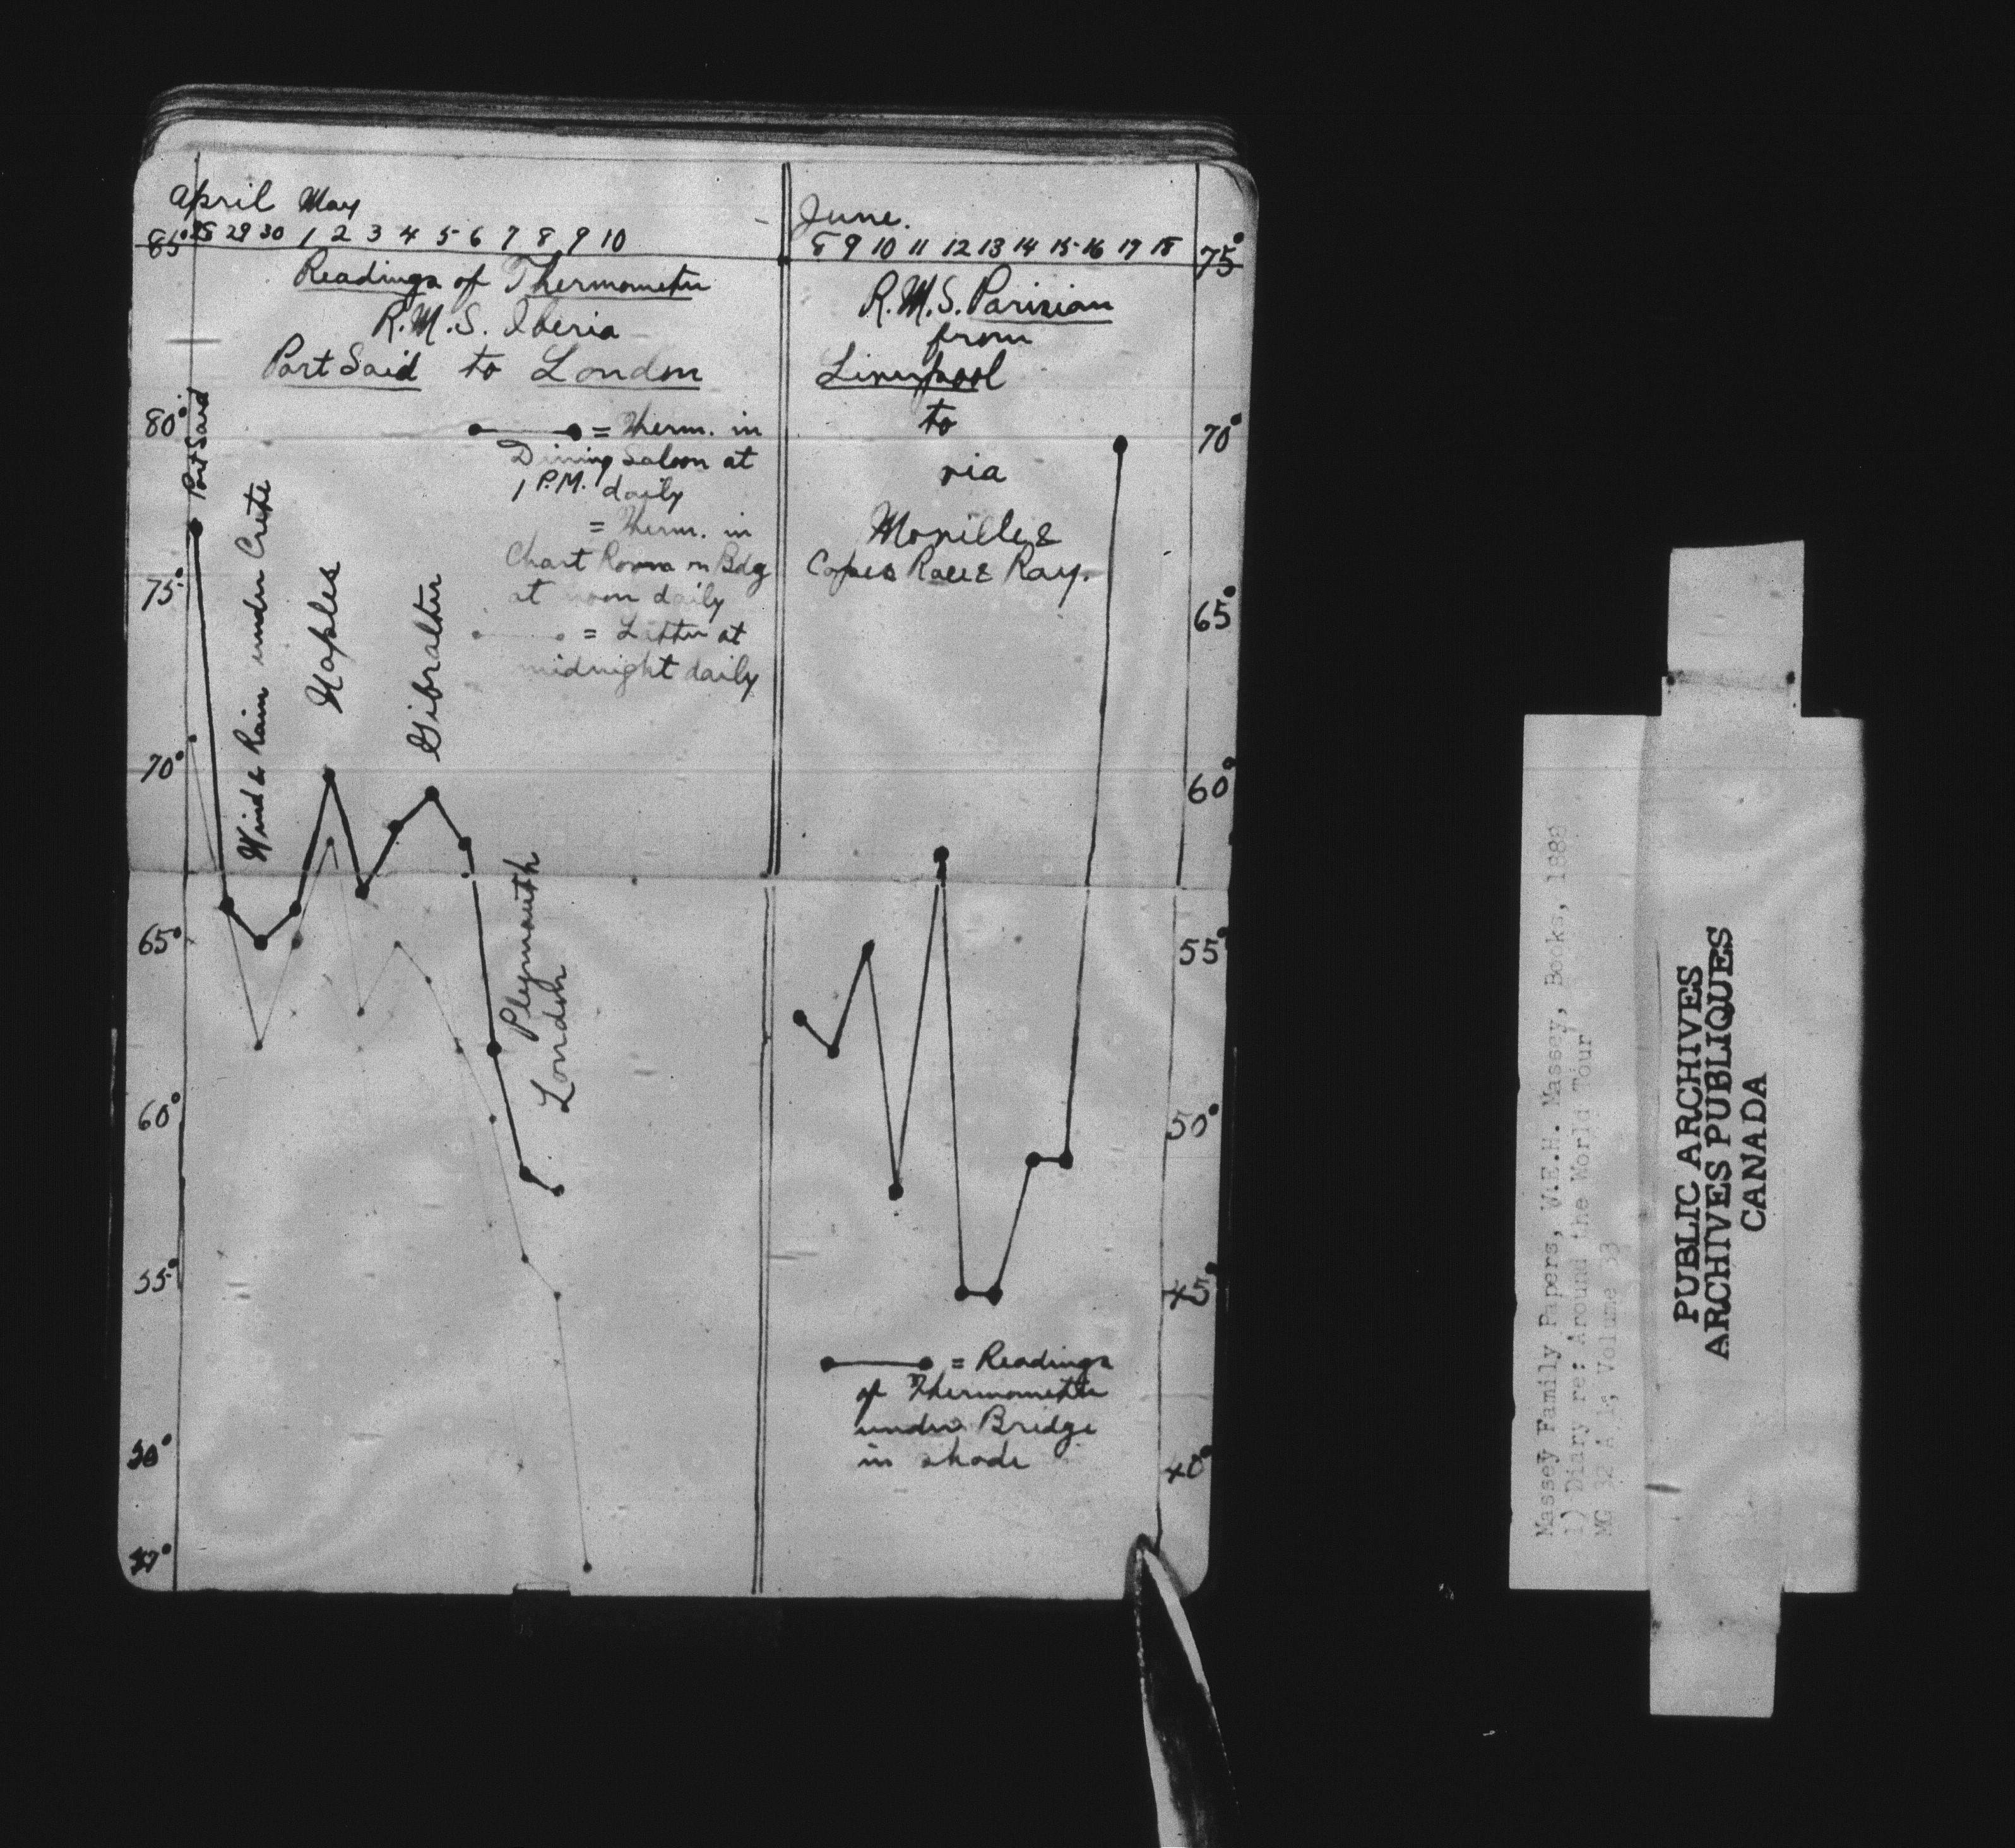 April May
28 29 30 1 2 3 4 5 6 7 8 9 10
85°
Readings of Thermometer
R.M.S. Iberia
Port Said to London
= Therm. in
Dining Saloon at
1 P.M. daily
= Therm. in
Chart Room on Bdg
at noon daily
= Latter at
midnight daily
80°
75°
70°
65°
60°
55°
50°
47°
Port Said
Wind & Rain under Crete
Naples
Gibralter
Plymouth
London
June.
8 9 10 11 12 13 14 15 16 17 18
75°
R.M.S. Parisian
from
Liverpool
to
via
Moville &
Capes Race & Ray.
70°
65°
60°
55°
50°
45°
40°
= Readings
of Thermometer
under Bridge
in shade
Massey Family Papers, W.E.H. Massey, Books, 1888
1) Diary re: Around the World Tour
MG 32 A 1, Volume 33
PUBLIC ARCHIVES
ARCHIVES PUBLIQUES
CANADA